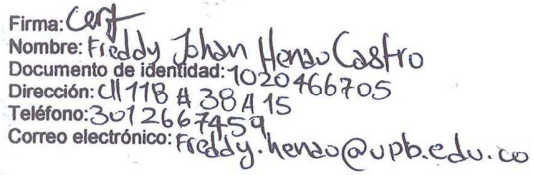 Firma: Cerf
Nombre: Freddy Johan Henao Castro
Documento de identidad: 1020466705
Dirección: Cll 11B # 38A 15
Teléfono: 3012667459
Correo electrónico: Freddy.henao@upb.edu.co